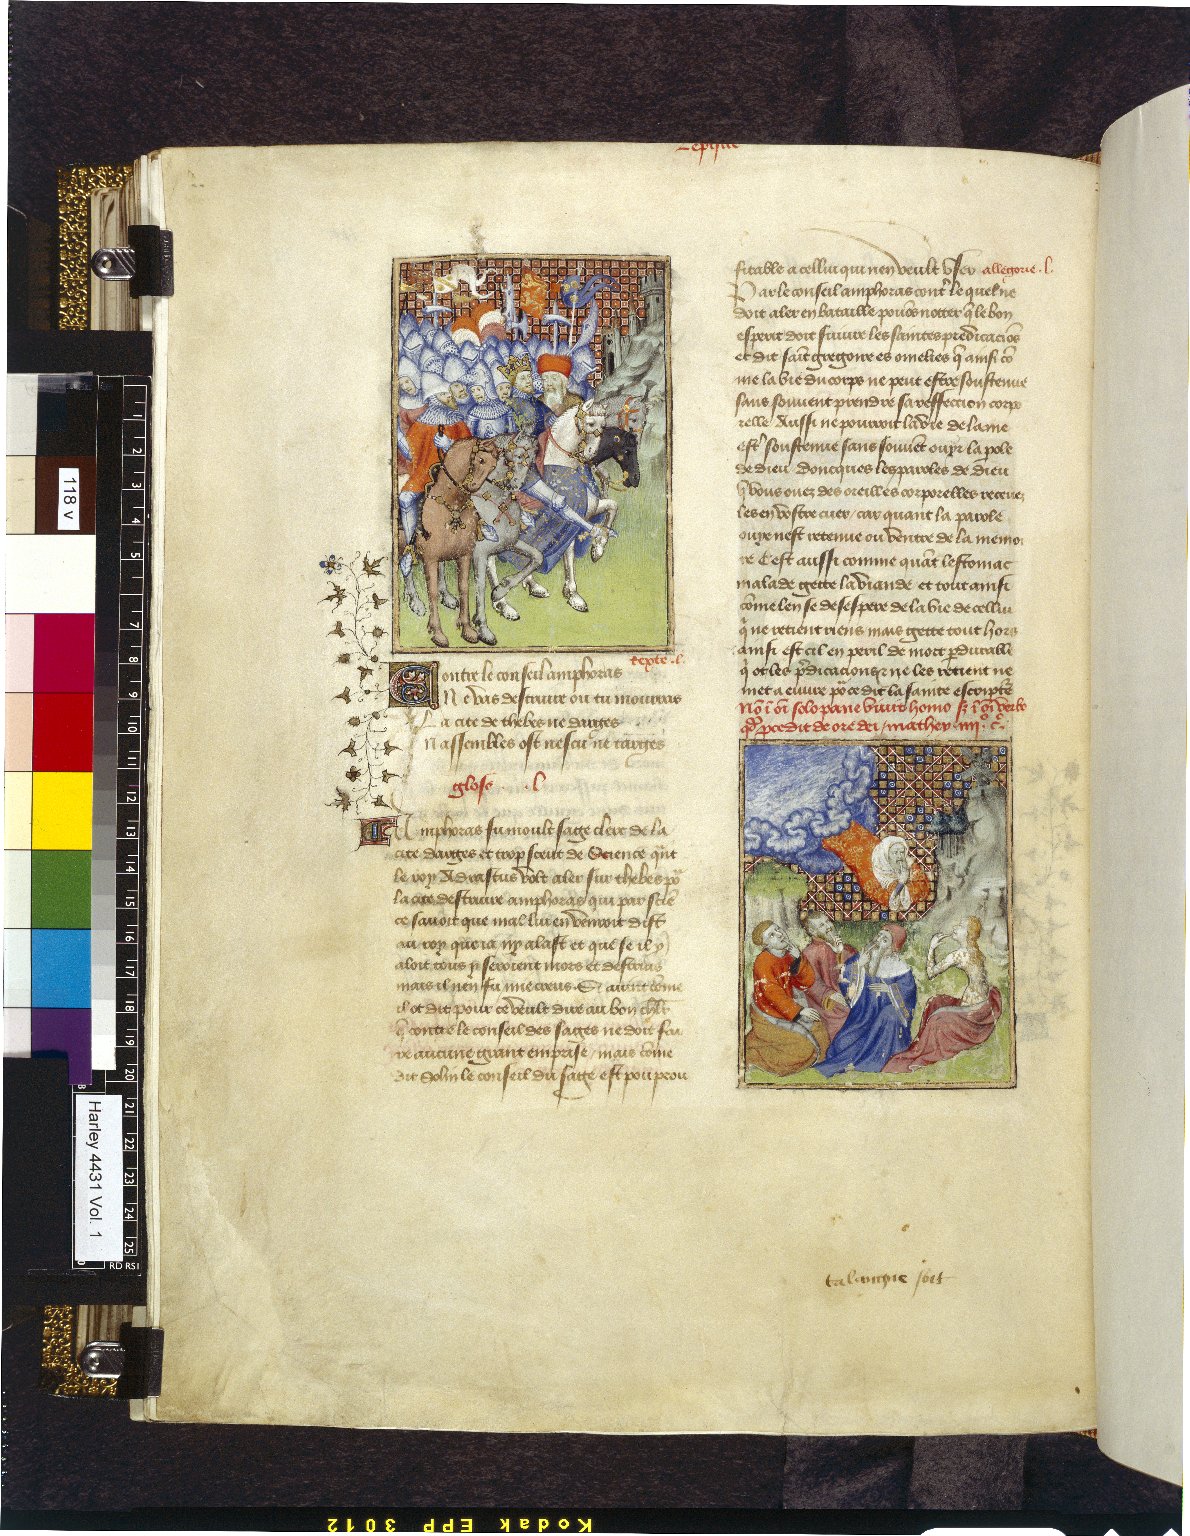 Lepistre
texte .l.
Contre le conseil amphoras
Ne vas destruire ou tu mourras
La cite de thebes ne darges
Nassembles ost nescu ne targes
glose .l.
Amphoras fu moult sage clerc de la
cite darges et trop sceut de Science qnt
le roy Adrastus volt aler sur thebes po
la cite destruire amphoras qui par scie
ce savoit que mal lui en vendroit dist
au roy que ia ny alast et que se il y
aloit tous y seroient mors et destruis
mais il nen fu mie creus. Si avint come
il ot dit pour ce veult dire au bon chlr
q contre le conseil des sages ne doit fai
re aucune grant emprise / mais come
dit Solin le conseil du sage est pou prou
fitable a cellui qui nen veult user allegorie .l.
Par le conseil amphoras contr lequel ne
doit aler en bataille povos notter q le bon
esperit doit suivre les saintes predicacios
et dit saint gregoire es omelies q ainsi co
me la vie du corps ne peut estre soustenue
sans souvent prendre sa reffeccion corpo
relle Aussi ne pourroit la vie de lame
estr soustenue sans souvet oupr la pole
de dieu Doncques les paroles de dieu
q vous ouez des oreilles corporelles recevez
les en vostre cuer / car quant la parole
ouye nest retenue ou ventre de la memoi
re cest aussi comme quat lestomac
malade gette la viande et tout ainsi
come len se desespere de la vie de cellui
q ne retient riens mais gette tout hors
ainsi est cil en peril de mort pdurable
q ot les pdicacions z ne les retient ne
met a euvre po ce dit la sainte escripte
No i oi solo pane vivit homo sz i oi verbo
qd pcedit de ore dei / mathey iiii. c.
talangue soit
118 v
Harley 4431 Vol. 1
1
2
3
4
5
7
8
9
10
11
12
13
14
15
16
17
18
19
20
21
22
23
24
25
RD RSI
Kodak EPP 3012